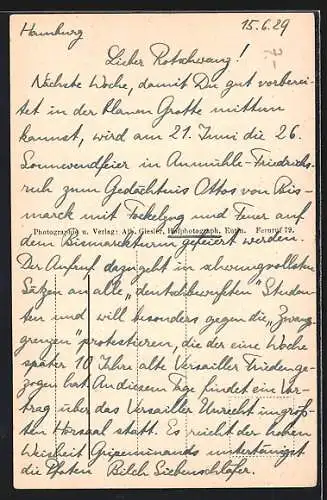 Hamburg 15.6.29
Lieber Rotschwanz!
Nächste Woche, damit Du gut vorberei-
tet in der blauen Grotte mittun
kannst, wird am 21. Juni die 26.
Sonnwendfeier in Aumühle-Friedrichs-
ruh zum Gedächtnis Ottos von Bis-
marck mit Fackelzug und Feuer auf
Photographie u. Verlag: Alb. Giesler, Hofphotograph, Eutin. Fernruf 79.
dem Bismarckturm gefeiert werden.
Der Aufruf dazu geht in schwungvollsten
Sätzen an alle „deutschbewußten" Studen-
ten und will besonders gegen die „Zwing-
grenzen" protestieren, die der eine Woche
später 10 Jahre alte Versailler Frieden ge-
zogen hat. An diesem Tage findet ein Vor-
trag über das Versailler Unrecht im größ-
ten Hörsaal statt. Es reicht der hohen
Weisheit untertänigst
die Pfoten Bilch Siebenschläfer.